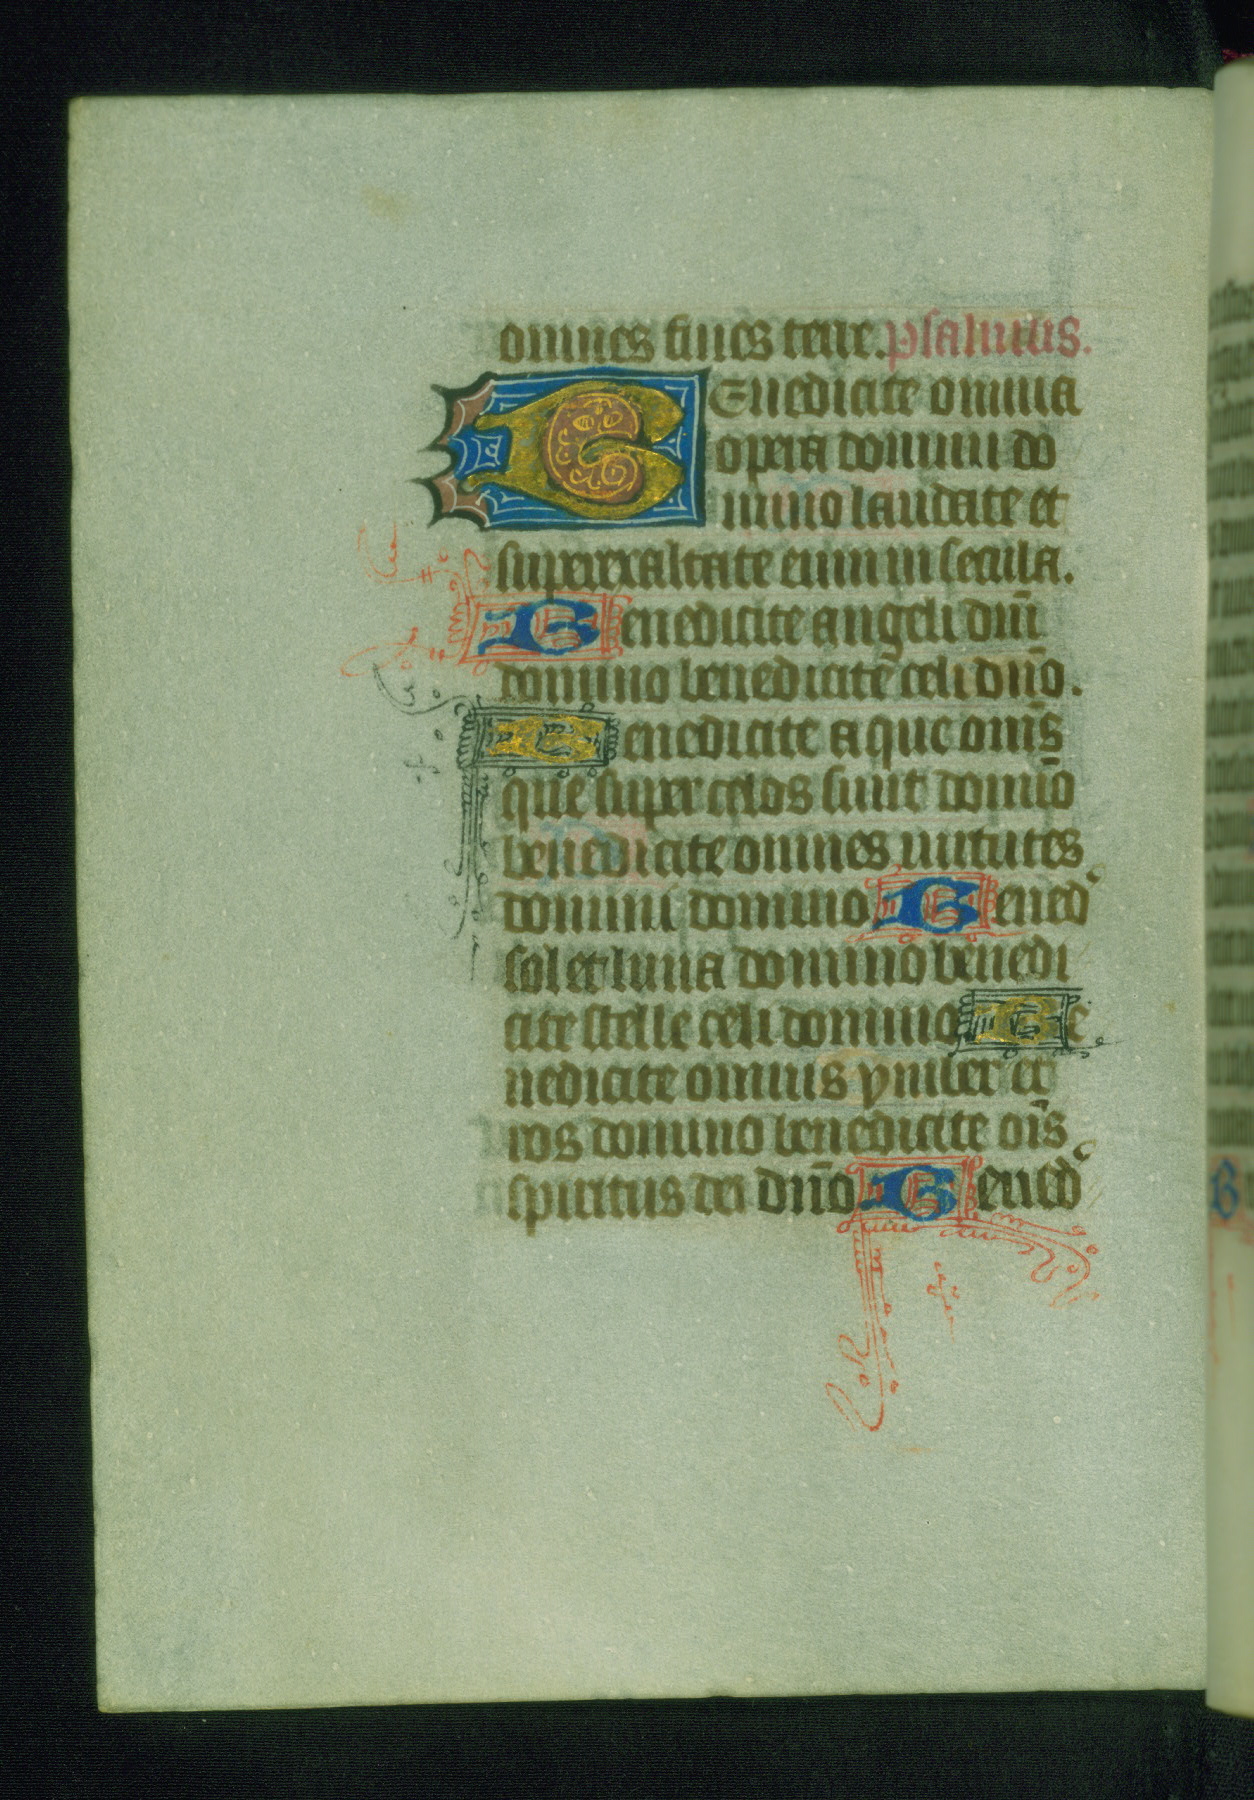 omnes fines terre. psalmus.
BEnedicite omnia
opera domini do
mino laudate et
superexaltate eum in secula.
Benedicite angeli dnı̄
domino benedicite celi dn̄o.
Benedicite aque om̄s
que super celos sunt domı̄o
benedicite omnes uirtutes
domini domino Bened'
sol et luna domino benedi
cite stelle celi domino Be
nedicite omnis ymber et
ros domino benedicite oı̄s
spiritus dei dn̄o Bened'